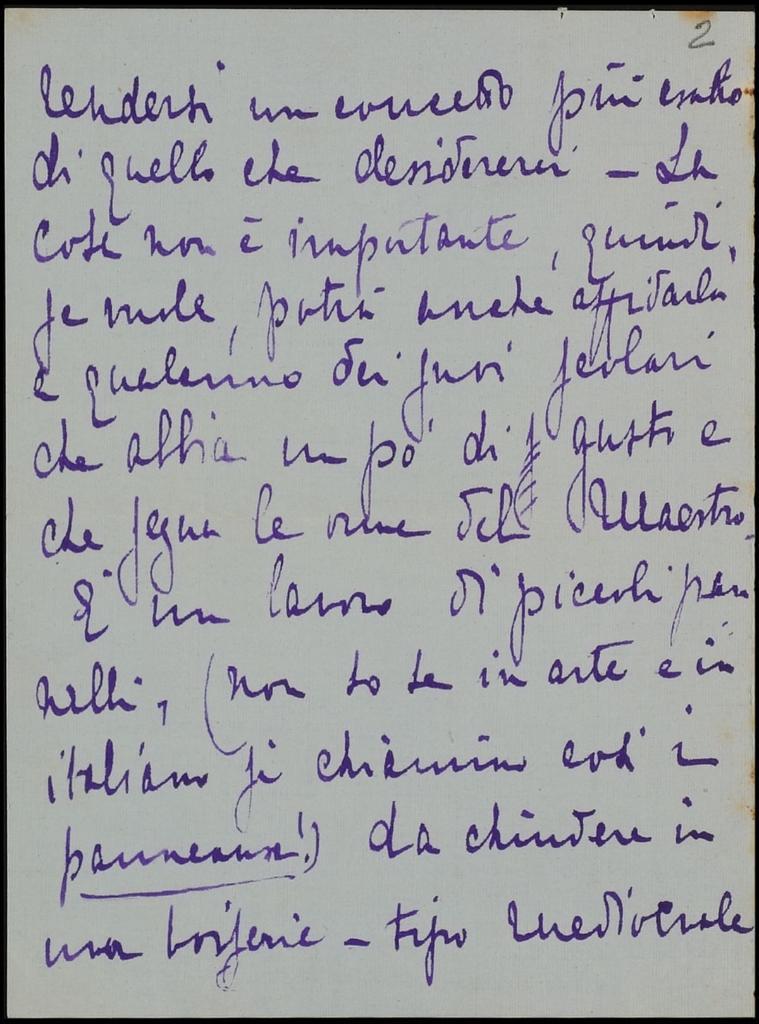 2
rendersi un concetto più esatto
di quello che desidererei – La
cosa non è importante, quindi,
se vuole, potrà anche affidarla
a qualcuno dei suoi scolari
che abbia un po' di gusto e
che segua le orme del Maestro.
È un lavoro di piccoli pan
nelli, (non so se in arte e in
italiano si chiamino così i
panneaux!) da chiudere in
una boiserie – tipo medioevale